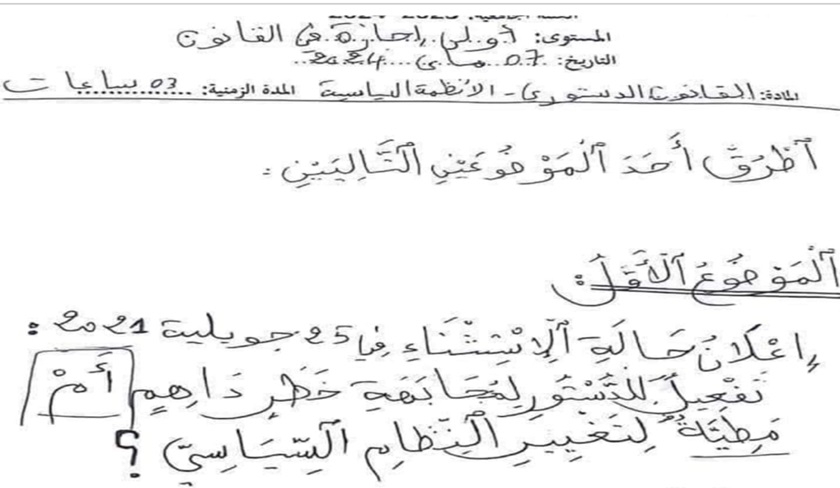 السنة الجامعية: 2023-2024
المستوى: أولى إجازة في القانون
التاريخ: 07 ماي 2024
المادة: القانون الدستوري - الأنظمة السياسية المدة الزمنية: 03 ساعات
أُطْرُقْ أَحَدَ ٱلْمَوْضُوعَيْنِ ٱلتَّالِيَيْنِ :
ٱلْمَوْضُوعُ ٱلْأَوَّلُ:
إِعْلَانُ حَالَةِ ٱلْاِسْتِثْنَاءِ في 25 جويلية 2021 :
تَفْعِيلٌ لِلدُّسْتُورِ لِمُجَابَهَةِ خَطَرٍ دَاهِمٍ أَمْ
مَطِيَّةٌ لِتَغْيِيرِ النِّظَامِ السِّيَاسِيِّ ؟